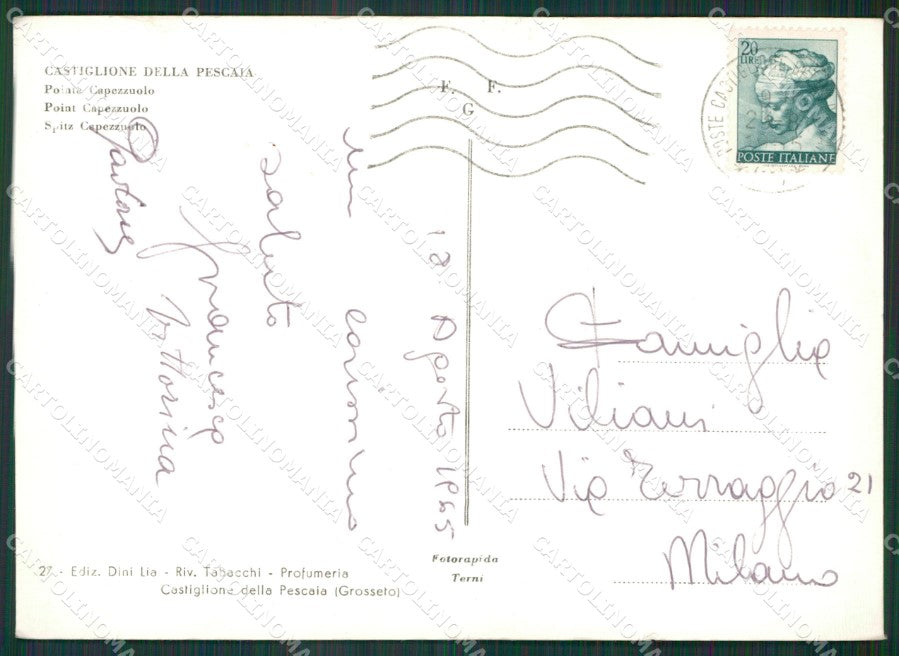 CASTIGLIONE DELLA PESCAIA
Pointe Capezzuolo
Point Capezzuolo
Spitz Capezzuolo
F. F.
G
20
LIRE
POSTE ITALIANE
12 Agosto 1965
un carissimo
saluto
Francesco
Vittorina
Famiglia
Viliani
Via Terraggio 21
Milano
27 - Ediz. Dini Lia - Riv. Tabacchi - Profumeria
Castiglione della Pescaia (Grosseto)
Fotorapida
Terni
CARTOLINOMANIA